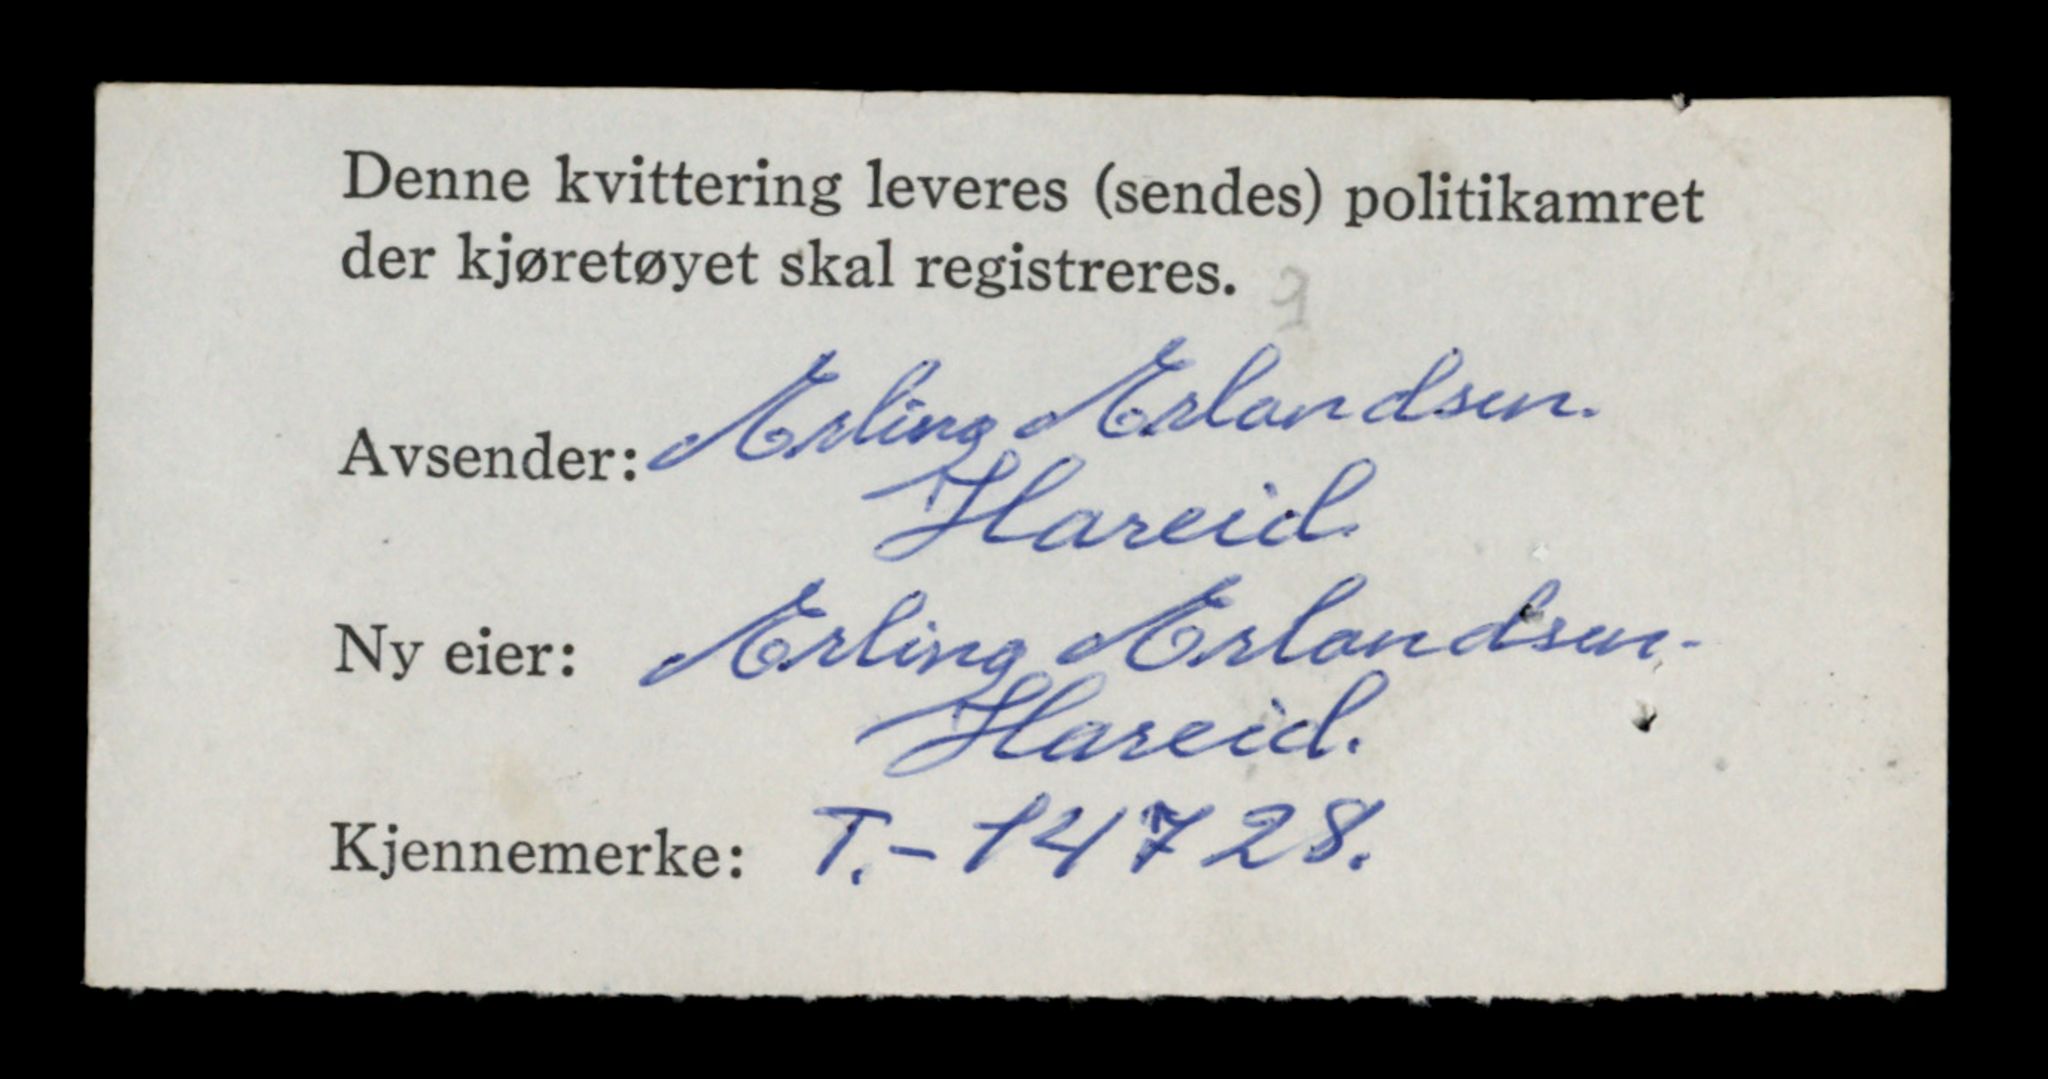 Denne kvittering leveres (sendes) politikamret
der kjøretøyet skal registreres.
9
Avsender: Erling Erlandsen.
Hareid.
Ny eier: Erling Erlandsen.
Hareid.
Kjennemerke: T.-14728.